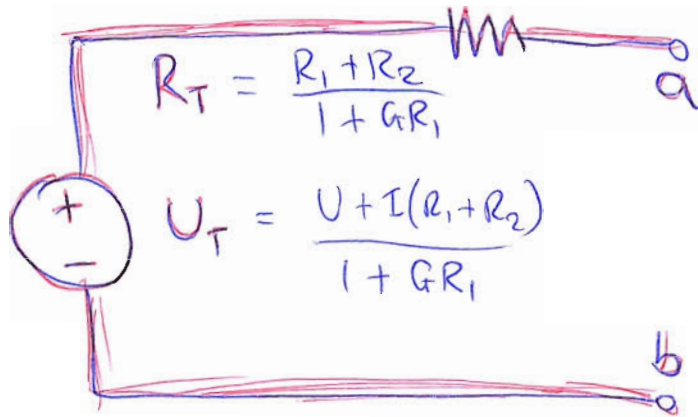 R_T = (R_1 + R_2) / (1 + GR_1)
a
+
U_T = (U + I(R_1 + R_2)) / (1 + GR_1)
−
b